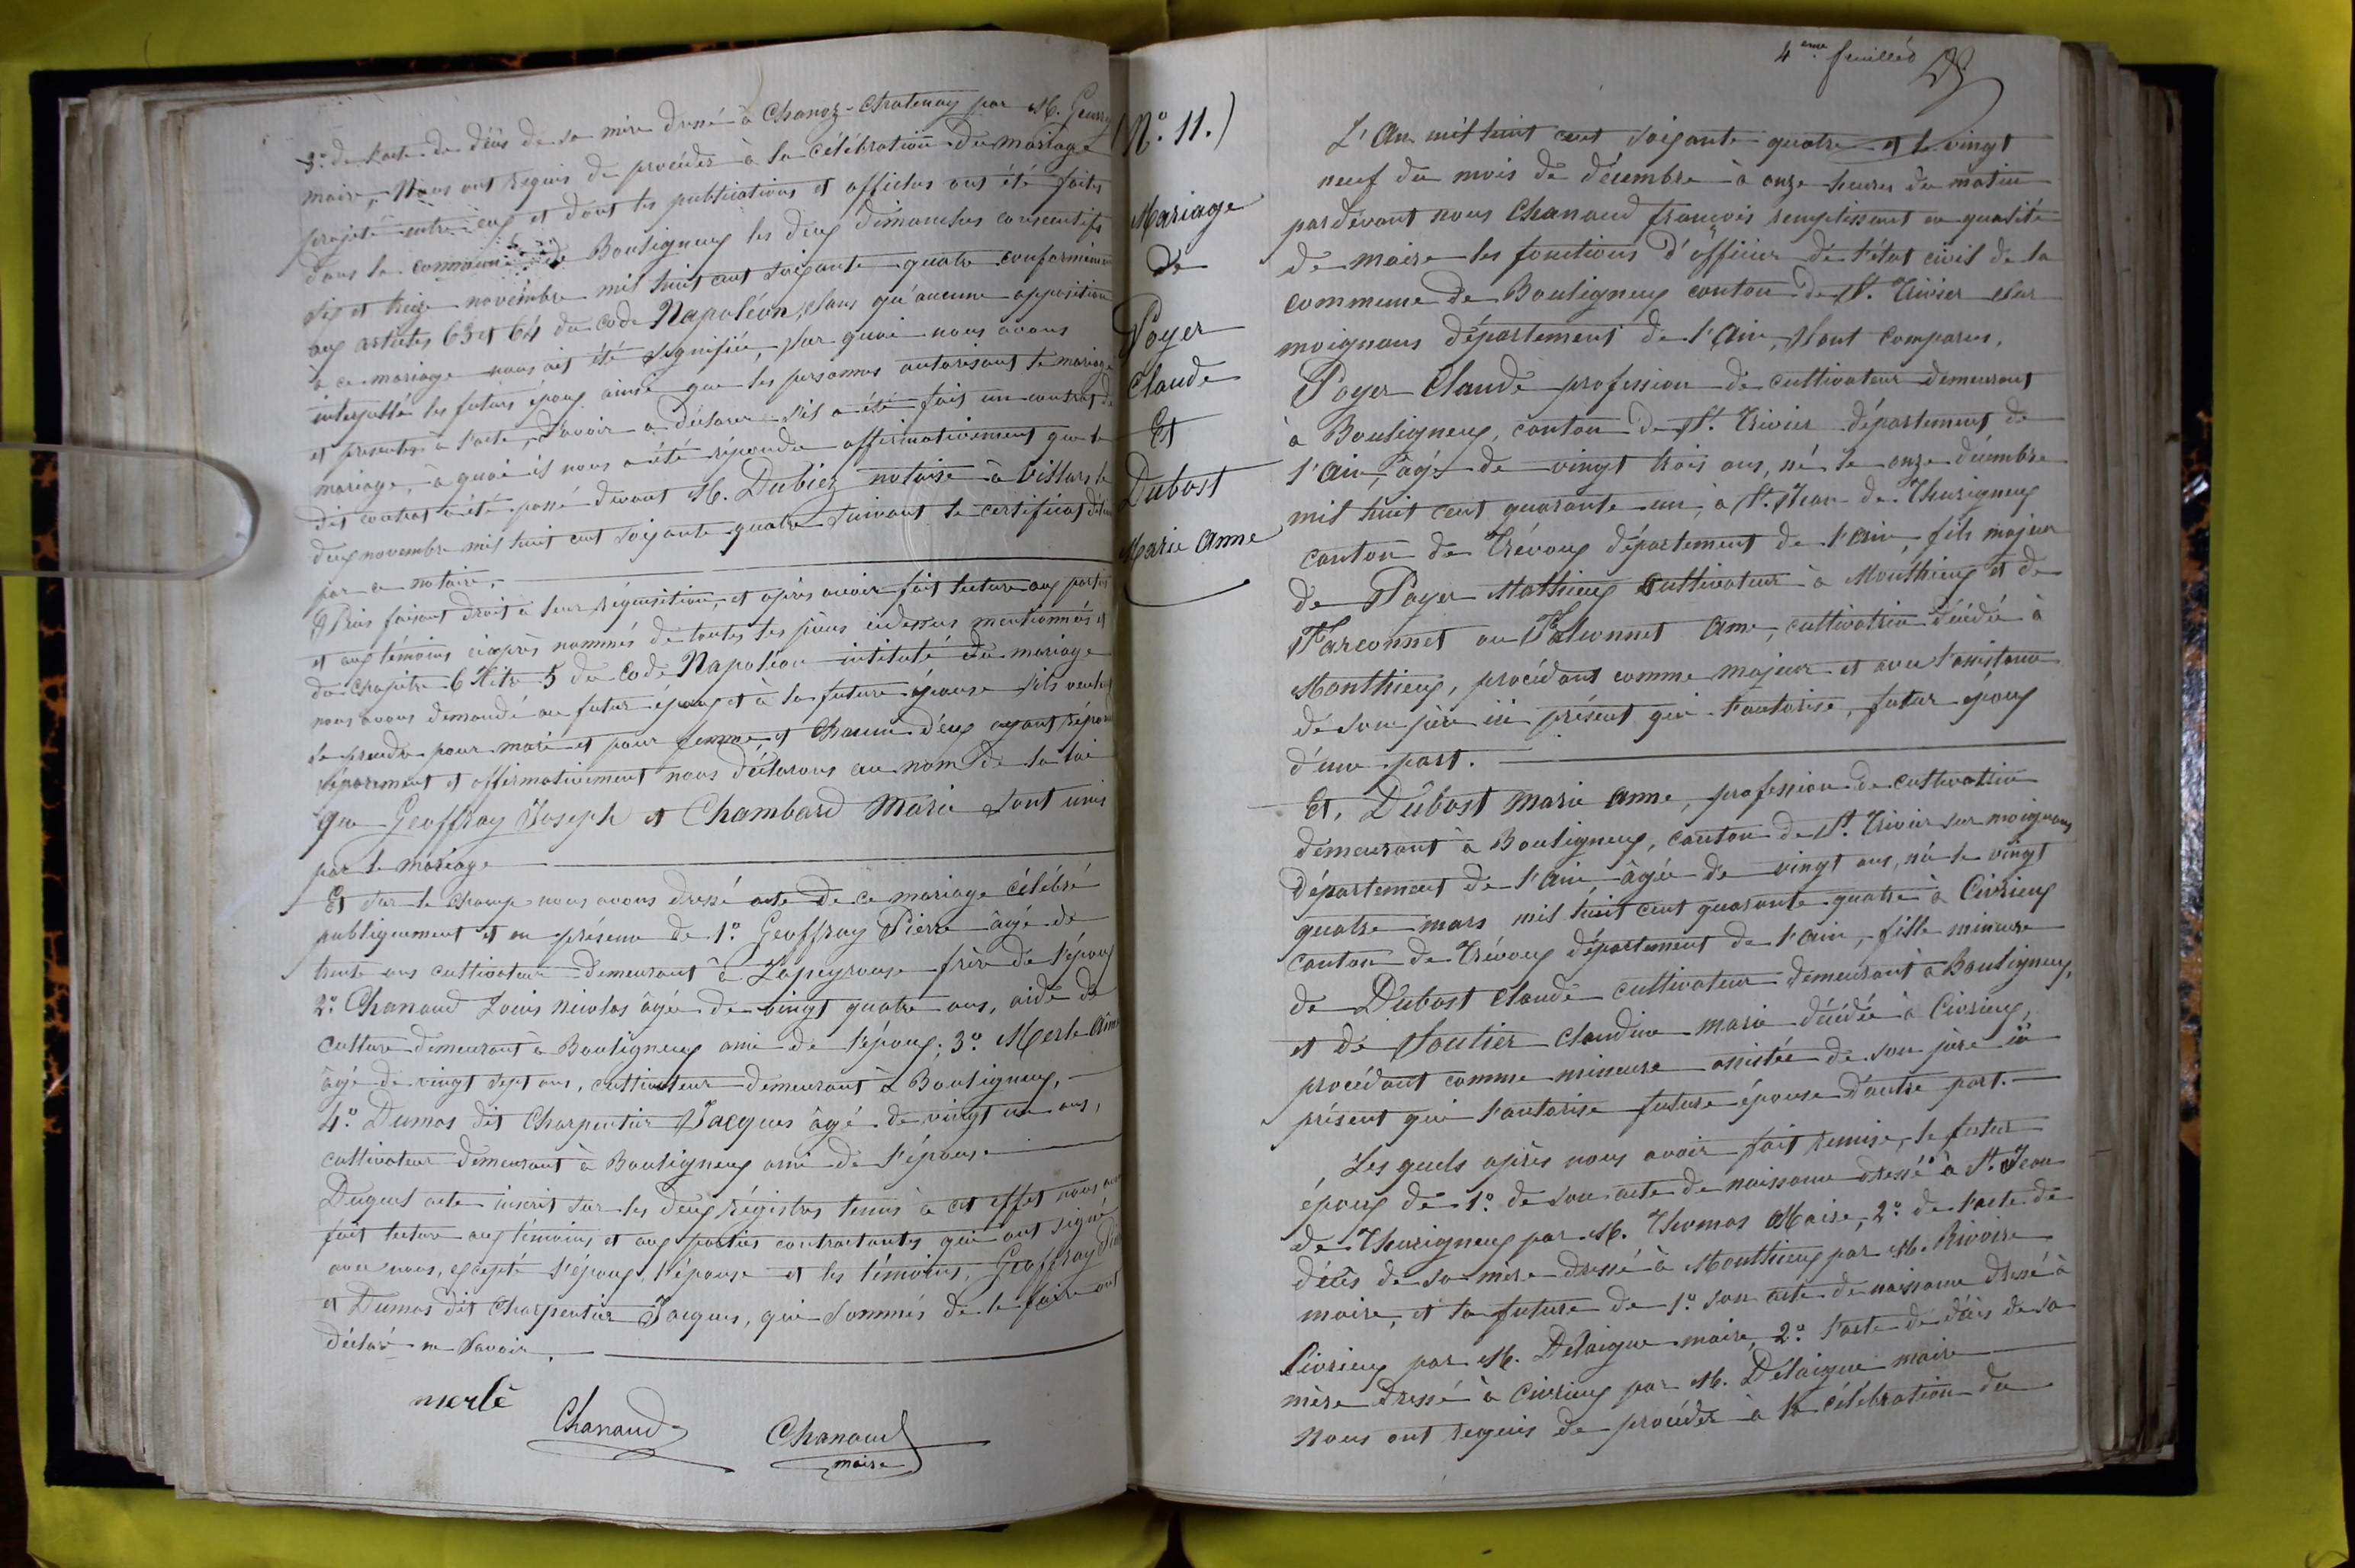 3º de l'acte de décès de sa mère dressé à Chanoz-Chatenay par M.
maire, Nous ont requis de procéder à la célébration du mariage
projeté entre eux et dont les publications et affiches ont été faites
dans la commune de Bouligneux les deux dimanches consécutifs
six et treize novembre mil huit cent soixante quatre conformément
aux articles 63 et 64 du code Napoléon, sans qu'aucune opposition
à ce mariage nous ait été signifiée, sur quoi nous avons
interpellé les futurs époux ainsi que les personnes autorisant le mariage
et présentes à l'acte, d'avoir à déclarer s'il a été fait un contrat de
mariage, à quoi il nous a été répondu affirmativement que le
dit contrat a été passé devant M. Dubiez notaire à Villars le
deux novembre mil huit cent soixante quatre suivant le certificat délivré
par ce notaire.
Puis faisant droit à leur réquisition, et après avoir fait lecture aux parties
et aux témoins ciaprès nommés de toutes les pièces cidessus mentionnées et
du chapitre 6 titre 5 du code Napoléon intitulé du mariage
nous avons demandé au futur époux et à la future épouse s'ils veulent
se prendre pour mari et pour femme et chacun d'eux ayant répondu
séparément et affirmativement nous déclarons au nom de la loi
que Geoffray Joseph et Chambard Marie sont unis
par le mariage
Et sur le champ nous avons dressé acte de ce mariage célébré
publiquement et en présence de 1º. Geoffray Pierre âgé de
trente ans cultivateur demeurant à Lapeyrouse frère de l'époux
2º. Chanaud Louis Nicolas âgé de vingt quatre ans, aide de
culture demeurant à Bouligneux ami de l'époux; 3º. Merle Aimé
âgé de vingt sept ans, cultivateur demeurant à Bouligneux,
4º. Dumas dit Charpentier Jacques âgé de vingt un ans,
cultivateur demeurant à Bouligneux ami de l'épouse
Duquel acte inscrit sur les deux régistres tenus à cet effet nous avons
fait lecture aux témoins et aux parties contractantes qui ont signé
avec nous, excepté l'époux, l'épouse et les témoins, Geoffray Pierre
et Dumas dit Charpentier Jacques, qui sommés de le faire ont
déclaré ne savoir.
merle
Chanaud
Chanaud
maire
4eme feuillet
(Nº. 11.)
Mariage
de
Poyer
Claude
Et
Dubost
Marie Anne
L'An mil huit cent soixante quatre et le vingt
neuf du mois de décembre à onze heures du matin
pardevant nous Chanaud françois remplissant en qualité
de maire les fonctions d'officier de l'état civil de la
commune de Bouligneux canton de St. Trivier sur
moignans département de l'Ain, sont comparus,
Poyer Claude profession de cultivateur demeurant
à Bouligneux, canton de St. Trivier département de
l'Ain, âgé de vingt trois ans, né le onze décembre
mil huit cent quarante un, à St. Jean de Thurigneux
canton de Trévoux département de l'Ain, fils majeur
de Poyer Mathieu cultivateur à Monthieux et de
Farconnet ou Falconnet Anne, cultivatrice décédée à
Monthieux, procédant comme majeur et avec l'assistance
de son père ici présent qui l'autorise, futur époux
d'une part.
Et, Dubost Marie Anne, profession de cultivatrice
demeurant à Bouligneux, canton de St. Trivier sur moignans
département de l'Ain âgée de vingt ans, née le vingt
quatre mars mil huit cent quarante quatre à Civrieux
canton de Trévoux département de l'Ain, fille mineure
de Dubost Claude cultivateur demeurant à Bouligneux,
et de Soutier Claudine Marie décédée à Civrieux,
procédant comme mineure assistée de son père ici
présent qui l'autorise future épouse d'autre part.
Les quels après nous avoir fait remise, le futur
époux de 1º. de son acte de naissance dressé à St. Jean
de Thurigneux par M. Thomas Maire, 2º. de l'acte de
décès de sa mère dressé à Monthieux par M. Rivoire
maire, et la future de 1º. son acte de naissance dressé à
Civrieux par M. Delaigue maire, 2º. l'acte de décès de sa
mère dressé à Civrieux par M. Delaigue maire
Nous ont requis de procéder à la célébration du